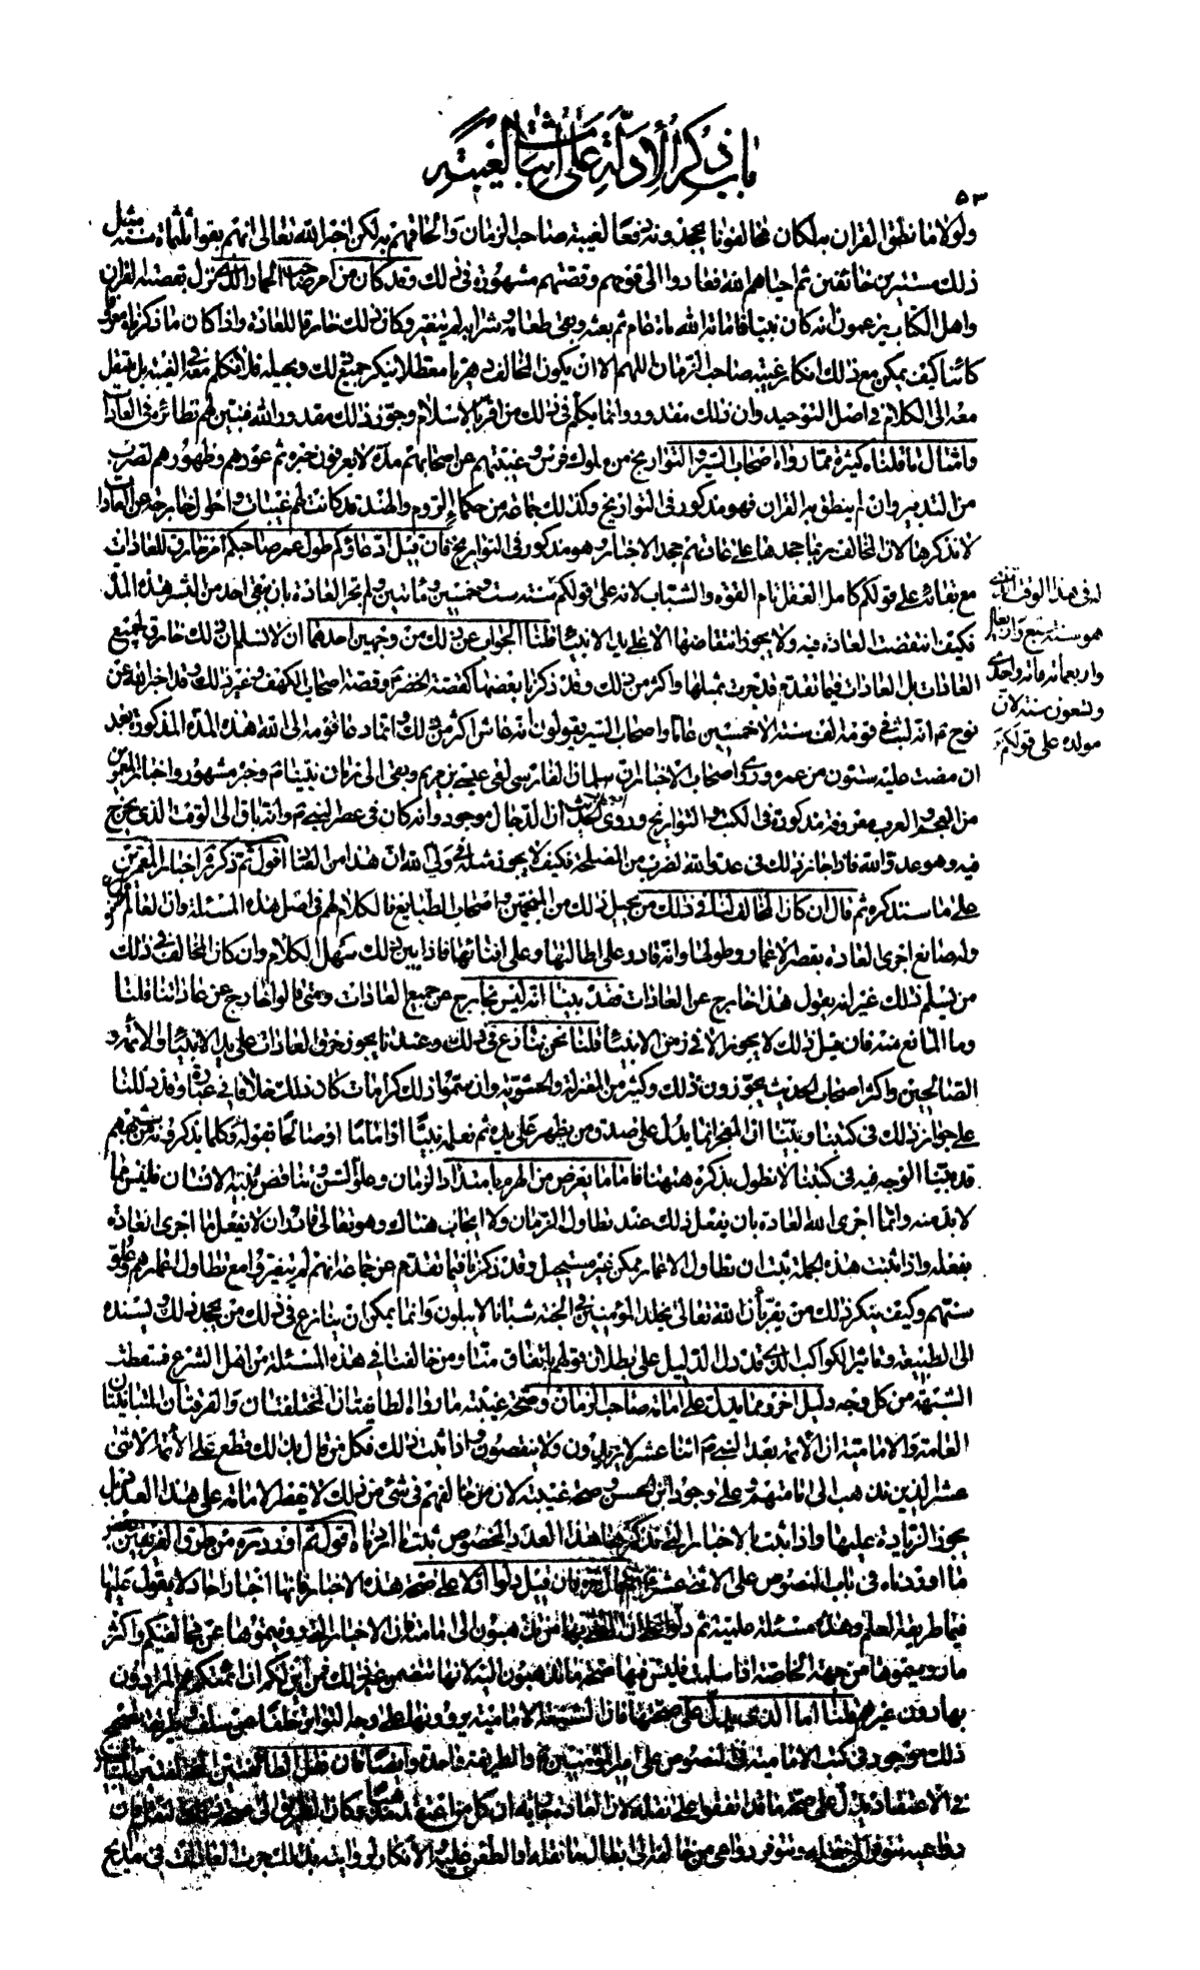 باب ذكر الأدلة على إثبات الغيبة
٥٣
ولولا ما نطق القران به لكان مخالفونا يجحدونه دفعا لغيبة صاحب الزمان والحاقهم به لكن اخبر الله تعالى انهم بقوا ثلثمائة سنة مثل
ذلك مستترين خائفين ثم احياهم الله فعادوا الى قومهم وقصتهم مشهورة في ذلك وقد كان من امر صاحب الحمار الذي نزل بقصته القران
واهل الكتاب يزعمون انه كان نبيا فاماته الله مائة عام ثم بعثه وبقى طعامه وشرابه لم يتغير وكان ذلك خارقا للعادة واذا كان ما ذكرناه معروفا
كائنا كيف يمكن مع ذلك انكار غيبة صاحب الزمان اللهم الا ان يكون المخالف دهريا معطلا ينكر جميع ذلك ويحيله فلا نكلم معه في الغيبة بل ينتقل
معه الى الكلام في اصل التوحيد وان ذلك مقدور وانما يكلم في ذلك من اقر بالاسلام وجوز ذلك مقدور الله فنبين لهم نظائره في العادات
وامثال ما قلناه كثيرة مما رواه اصحاب السير والتواريخ من ملوك فرس وغيبتهم عن اصحابهم مدة لا يعرفون خبره ثم عودهم وظهورهم لضرب
من التدبير وان لم ينطق به القران فهو مذكور في التواريخ وكذلك جماعة من حكماء الروم والهند قد كانت لهم غيبات واحوال خارجة عن العادات
لا نذكرها لان المخالف ربما جحدها على عادتهم جحد الاخبار وهو مذكور في التواريخ فان قيل ادعاؤكم طول عمر صاحبكم امر خارق للعادات
مع بقائه على قولكم كامل العقل تام القوة والشباب لانه على قولكم سنه ست وخمسين ومائتين ولم تجر العادة بان يبقى احد من البشر هذه المدة
فكيف انتقضت العادة فيه ولا يجوز انتقاضها الا على يد الانبياء قلنا الجواب عن ذلك من وجهين احدهما ان لا نسلم ان ذلك خارق لجميع
العادات بل العادات فيما تقدم قد جرت بمثلها واكثر من ذلك وقد ذكرنا بعضها كقصة الخضر وقصة اصحاب الكهف وغير ذلك وقد اخبر الله عن
نوح ع انه لبث في قومه الف سنة الا خمسين عاما واصحاب السير يقولون انه عاش اكثر من ذلك وانما دعا قومه الى الله هذه المدة المذكورة بعد
ان مضت عليه ستون من عمره وروى اصحاب الاخبار ان سلمان الفارسي لقى عيسى بن مريم وبقى الى زمان نبينا ص وخبره مشهور واخبار المعمرين
من العجم والعرب معروفة مذكورة في الكتب والتواريخ وروى اصحاب الحديث ان الدجال موجود وانه كان في عصر النبي ص وانه باق الى الوقت الذي يخرج
فيه وهو عدو الله فاذا جاز ذلك في عدو الله لضرب من المصلحة فكيف لا يجوز مثله في ولي الله ان هذا من العناد اقول ثم ذكر ره اخبار المعمرين
على ما سنذكره ثم قال ان كان المخالف لنا في ذلك من يحيل ذلك من المنجمين واصحاب الطبايع فالكلام لهم في اصل هذه المسئلة وان العالم مصنوع
وله صانع اجرى العادة بقصر الاعمار وطولها وانه قادر على اطالتها وعلى افنائها فاذا بين ذلك سهل الكلام وان كان المخالف في ذلك
من يسلم ذلك غير انه يقول هذا خارج عن العادات فقد بينا انه ليس بخارج عن جميع العادات ومتى قالوا خارج عن عاداتنا قلنا
وما المانع منه فان قيل ذلك لا يجوز الا في زمن الانبياء قلنا نحن ننازع في ذلك وعندنا يجوز خرق العادات على يد الانبياء والائمة و
الصالحين واكثر اصحاب الحديث يجوزون ذلك وكثير من المعتزلة والحشوية وان سموا ذلك كرامات كان ذلك خلافا في عبارة وقد دللنا
على جواز ذلك في كتبنا وبينا ان المعجز انما يدل على صدق من يظهر على يده ثم نعلمه نبيا او اماما او صالحا بقوله وكلما يذكرونه من شبههم
قد بينا الوجه فيه في كتبنا لا نطول بذكره ههنا فاما ما يعرض من الهرم بامتداد الزمان وعلو السن وتناقض بنية الانسان فليس مما
لا بد منه وانما اجرى الله العادة بان يفعل ذلك عند تطاول الزمان ولا ايجاب هناك وهو تعالى قادر ان لا يفعل ما اجرى العادة
بفعله واذا ثبت هذه الجملة ثبت ان تطاول الاعمار ممكن غير مستحيل وقد ذكرنا فيما تقدم عن جماعة انهم لم يتغيروا مع تطاول اعمارهم وعلو
سنهم وكيف ينكر ذلك من يقر بأن الله تعالى يخلد المؤمنين في الجنة شبانا لا يبلون وانما يمكن ان ينازع في ذلك من يجحد ذلك ويسنده
الى الطبيعة وتاثير الكواكب الذي قد دل الدليل على بطلان قولهم باتفاق منا ومن خالفنا في هذه المسئلة من اهل الشرع فسقطت
الشبهة من كل وجه دليل اخر ومما يدل على امامة صاحب الزمان وصحة غيبته ما رواه الطايفتان المختلفتان والفرقتان المتباينتان
العامة والامامية ان الأئمة بعد النبي ص اثنا عشر لا يزيدون ولا ينقصون واذا ثبت ذلك فكل من قال بذلك قطع على الأئمة الاثني
عشر الذين نذهب الى امامتهم وعلى وجود ابن الحسن وصحة غيبته لان من خالفهم في شئ من ذلك لا يقصر الامامة على هذا العدد بل
يجوز الزيادة عليها واذا ثبت بالاخبار التي نذكرها هذا العدد المخصوص ثبت ما اردناه اقول ثم اورد ره من طرق الفريقين بعض
ما اوردناه في باب النصوص على الاثنى عشر ثم قال ره فان قيل دلوا اولا على صحة هذه الاخبار فانها اخبار احاد لا يعول عليها
فيما طريقه العلم وهذه مسئلة علمية ثم دلوا على ان المعنى بها من تذهبون الى امامته فان الاخبار التي رويتموها عن مخالفيكم واكثر
ما رويتموها من جهة الخاصة اذا سلمت فليس فيها صحة ما تذهبون اليه لانها تتضمن غير ذلك فمن اين لكم ان ائمتكم هم المرادون
بها دون غيرهم قلنا اما الذي يدل على صحتها فان الشيعة الامامية يروونها على وجه التواتر خلفا عن سلف وطريقة تصحيح
ذلك موجود في كتب الامامية في النصوص على امير المؤمنين ع والطريقة واحدة وايضا فان نقل الطائفتين المختلفتين المتباينتين
في الاعتقاد يدل على صحة ما قد اتفقوا على نقله لان العادة جارية ان كل من اعتقد مذهبا وكان الطريق الى صحة ذلك النقل فان
دواعيه تتوفر الى نقله وتتوفر دواعي من خالفه الى ابطال ما نقله او الطعن عليه والانكار لروايته بذلك جرت العادات في مدايح
اذ في هذا الوقت الذي
هو سنة سبع واربعين
واربعمائة مائة واحدى
وتسعون سنة لان
مولده على قولكم